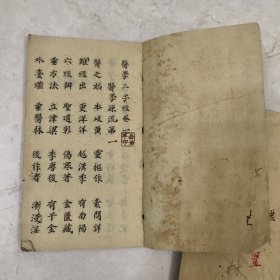 醫學三字經卷一
醫學源流第一
醫之始 本岐黃 靈樞作 素問詳
難經出 更洋洋 越漢季 有南陽
六經辨 聖道彰 傷寒著 金匱藏
垂方法 立津梁 李唐後 有千金
外臺繼 重醫林 後作者 漸浸淫